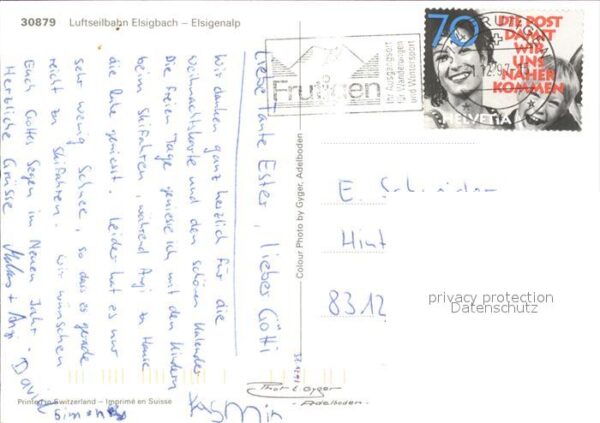 30879 Luftseilbahn Elsigbach – Elsigenalp
Liebe Tante Ester, lieber Götti
Wir danken ganz herzlich für die
Weihnachtskarte und den schönen Kalender
Die freien Tage geniesse ich mit den Kindern
beim Skifahren, während Anji zu Hause
die Ruhe geniesst. Leider hat es nur
sehr wenig Schnee, so dass es gerade
reicht zum Skifahren. Wir wünschen
Euch Gottes Segen im Neuen Jahr.
Herzliche Grüsse
David
Simon
Printed in Switzerland – Imprimé en Suisse
Colour Photo by Gyger, Adelboden
Photo Gyger
Adelboden
Frutigen
Ihr Ausgangsort
für Wanderungen
und Wintersport
70
DIE POST
DAMIT
WIR
UNS
NÄHER
KOMMEN
HELVETIA
E.
Hint
8312
privacy protection
Datenschutz